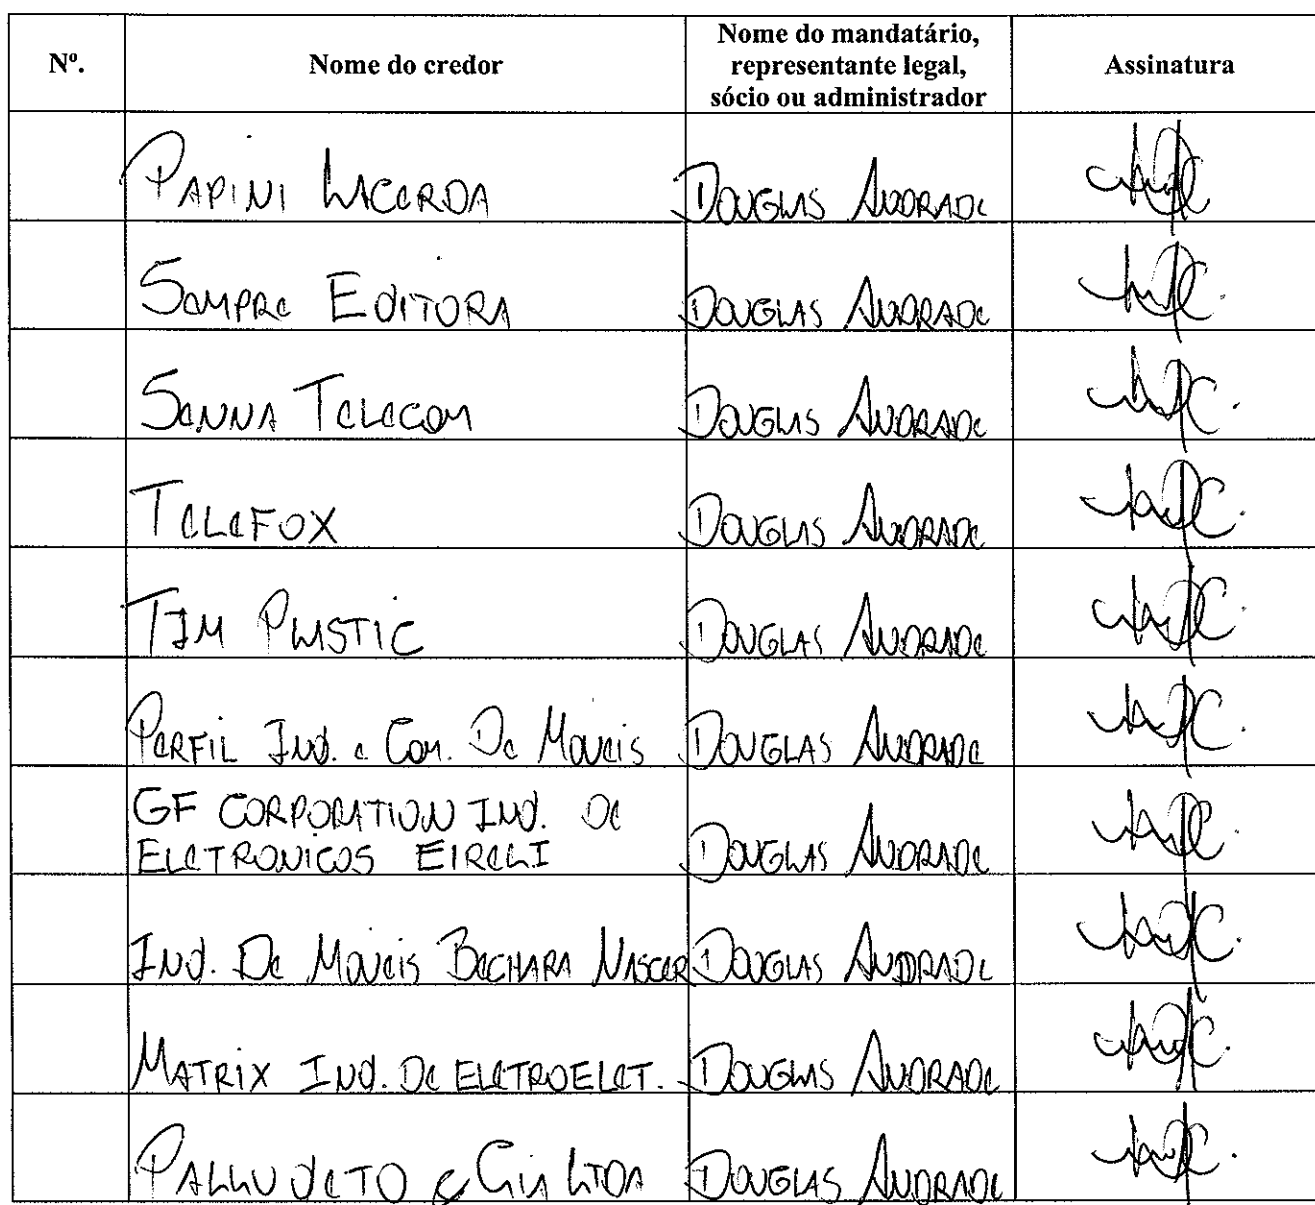 Nº. Nome do credor Nome do mandatário, representante legal, sócio ou administrador Assinatura
PAPINI LACERDA DOUGLAS ANDRADE
SEMPRE EDITORA DOUGLAS ANDRADE
SENNA TELECOM DOUGLAS ANDRADE
TELEFOX DOUGLAS ANDRADE
TJM PLASTIC DOUGLAS ANDRADE
PERFIL IND. E COM. DE MOVEIS DOUGLAS ANDRADE
GF CORPORATION IND. DE
ELETRONICOS EIRELI DOUGLAS ANDRADE
IND. DE MOVEIS BECHARA NASCER DOUGLAS ANDRADE
MATRIX IND. DE ELETROELET. DOUGLAS ANDRADE
E CIA LTDA DOUGLAS ANDRADE